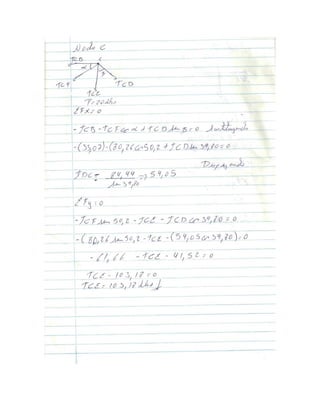 Nodo C
TCB C
α β
TCF TCD
TCE
ΣFx=0
-TCB-TCFcos α+TCD sen B=0
-(3307)-(80,26cos50,2+TCD sen 39,80=0
Despejando
TDC= 84,44 => 59,05
sen 39,80
ΣFy=0
-TCF sen 50,2-TCE-TCD cos 39,80=0
-(80,26 sen 50,2-TCE-(59,05cos 39,80)=0
-61,66 -TCE-41,52=0
TCE-103,18=0
TCE=103,18